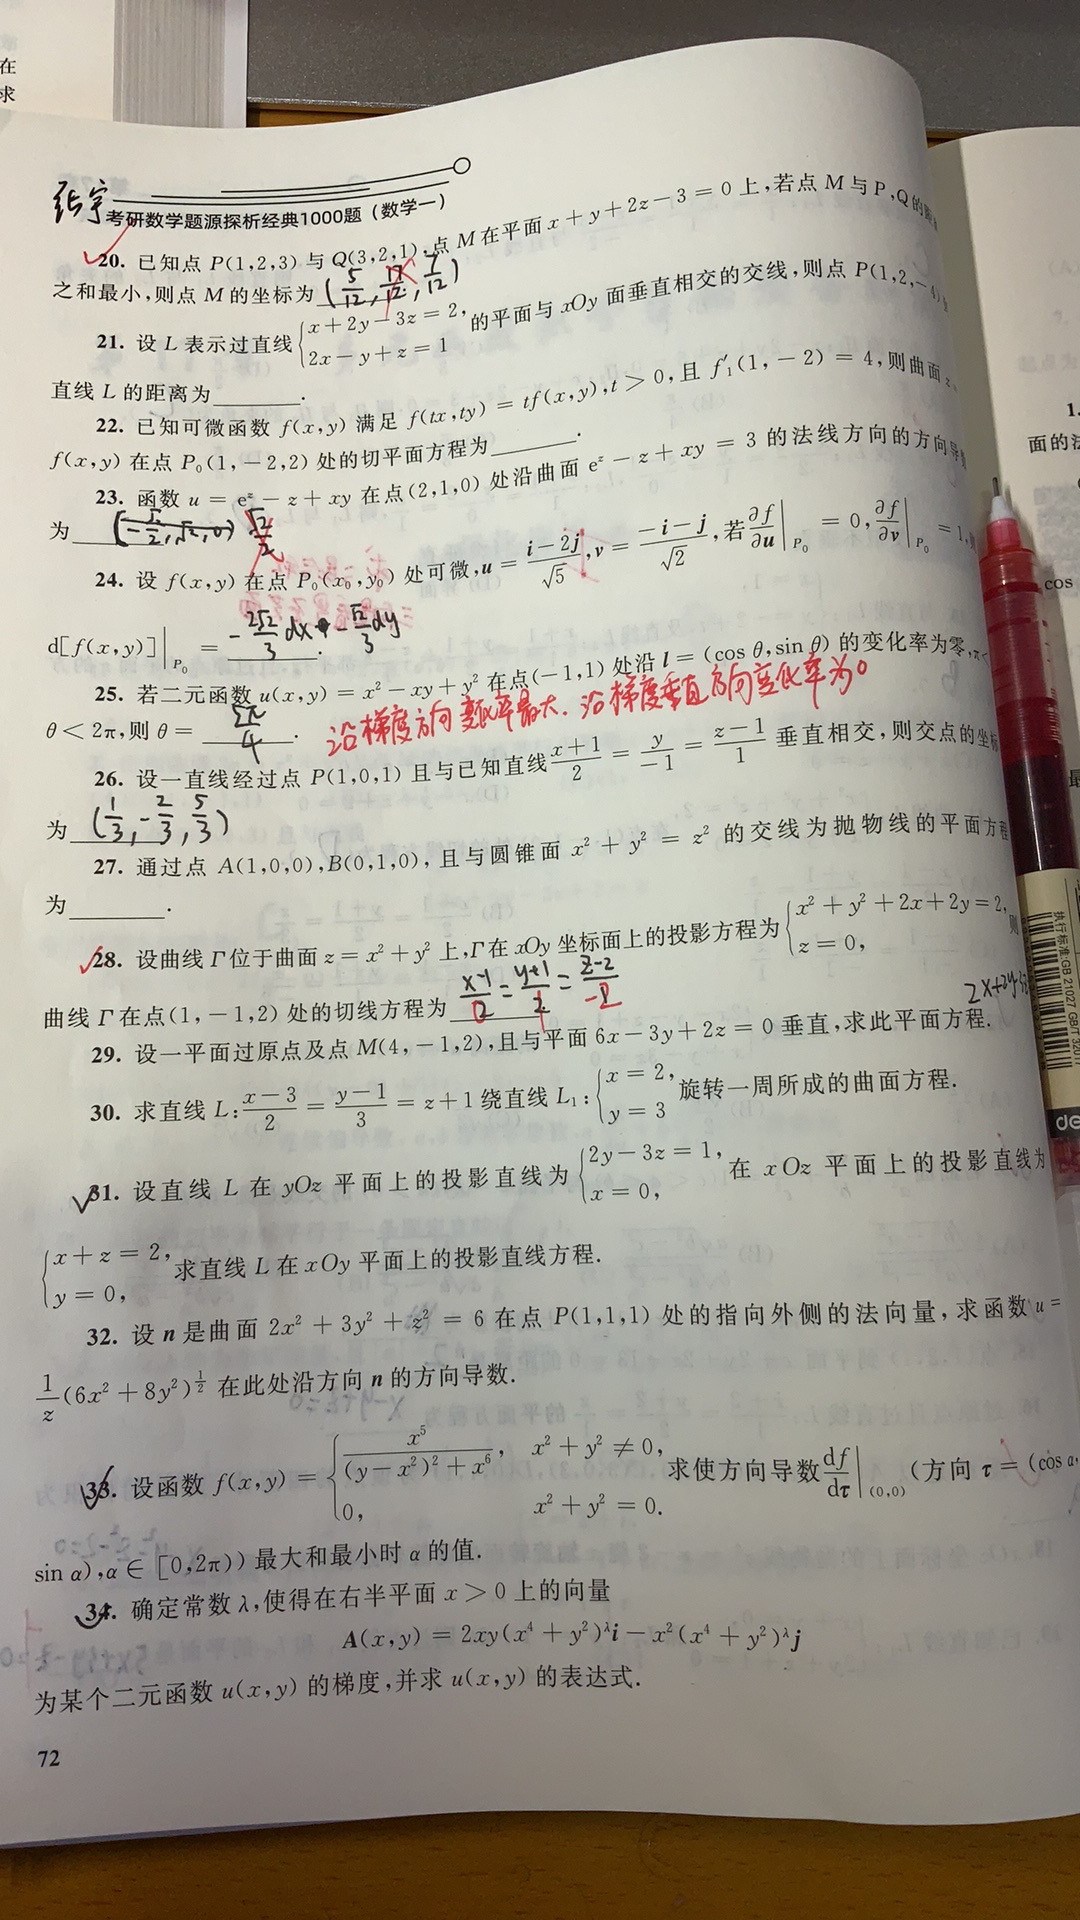 在
求
张宇
考研数学题源探析经典1000题（数学一）
20. 已知点 P(1,2,3) 与 Q(3,2,1),点 M 在平面 x+y+2z-3=0 上,若点 M 与 P,Q 的
之和最小,则点 M 的坐标为 (5/12, 17/12, 7/12)
21. 设 L 表示过直线 {x+2y-3z=2, 2x-y+z=1 的平面与 xOy 面垂直相交的交线,则点 P(1,2,
直线 L 的距离为________.
22. 已知可微函数 f(x,y) 满足 f(tx,ty) = tf(x,y),t>0,且 f′₁(1,-2) = 4,则曲面 z
f(x,y) 在点 P₀(1,-2,2) 处的切平面方程为________.
23. 函数 u = e^z - z + xy 在点(2,1,0) 处沿曲面 e^z - z + xy = 3 的法线方向的方向导
为
24. 设 f(x,y) 在点 P₀(x₀,y₀) 处可微,u = (i-2j)/√5, v = (-i-j)/√2, 若 ∂f/∂u|P₀ = 0, ∂f/∂v|P₀ = 1,
d[f(x,y)]|P₀ = -2√2/3 dx - √2/3 dy.
25. 若二元函数 u(x,y) = x² - xy + y² 在点(-1,1) 处沿 l = (cos θ,sin θ) 的变化率为零,π<
θ<2π,则 θ = 5π/4.
沿梯度方向变化率最大.沿梯度垂直方向变化率为0
26. 设一直线经过点 P(1,0,1) 且与已知直线 (x+1)/2 = y/-1 = (z-1)/1 垂直相交,则交点的坐标
为 (1/3, -2/3, 5/3)
27. 通过点 A(1,0,0),B(0,1,0),且与圆锥面 x² + y² = z² 的交线为抛物线的平面方程
为________.
28. 设曲线 Γ 位于曲面 z = x² + y² 上,Γ 在 xOy 坐标面上的投影方程为 {x² + y² + 2x + 2y = 2, z = 0, 则
曲线 Γ 在点(1,-1,2) 处的切线方程为 (x-1)/0 = (y+1)/1 = (z-2)/-2
29. 设一平面过原点及点 M(4,-1,2),且与平面 6x - 3y + 2z = 0 垂直,求此平面方程.
30. 求直线 L: (x-3)/2 = (y-1)/3 = z+1 绕直线 L₁: {x = 2, y = 3 旋转一周所成的曲面方程.
31. 设直线 L 在 yOz 平面上的投影直线为 {2y - 3z = 1, x = 0, 在 xOz 平面上的投影直线为
{x + z = 2, y = 0, 求直线 L 在 xOy 平面上的投影直线方程.
32. 设 n 是曲面 2x² + 3y² + z² = 6 在点 P(1,1,1) 处的指向外侧的法向量,求函数 u =
1/z (6x² + 8y²)^(1/2) 在此处沿方向 n 的方向导数.
33. 设函数 f(x,y) = {x⁵/((y-x²)² + x⁶), x² + y² ≠ 0, 0, x² + y² = 0. 求使方向导数 df/dτ|(0,0) (方向 τ = (cos α,
sin α),α ∈ [0,2π)) 最大和最小时 α 的值.
34. 确定常数 λ,使得在右半平面 x > 0 上的向量
A(x,y) = 2xy(x⁴ + y²)^λ i - x²(x⁴ + y²)^λ j
为某个二元函数 u(x,y) 的梯度,并求 u(x,y) 的表达式.
72
1.
面的法
cos
执行标准:GB 21027 GB/T 32017
de